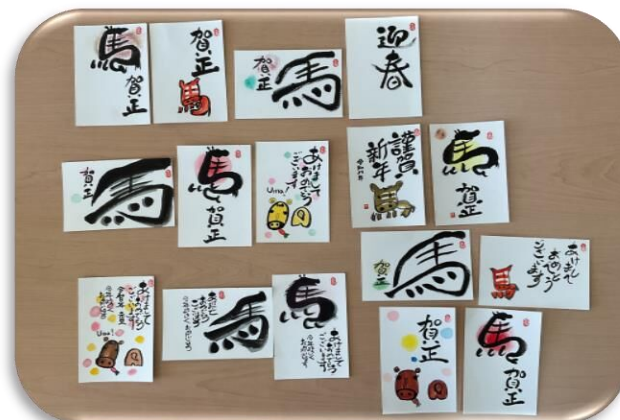 馬
賀正
賀正
賀正
馬
迎春
賀正
馬
馬
賀正
あけまして
おめでとう
ございます
Uma!
謹賀
新年
馬
賀正
賀正
馬
あけまして
おめでとう
ございます
あけまして
おめでとう
ございます
Uma!
あけまして
おめでとう
ございます
馬
馬
あけまして
おめでとう
ございます
賀正
馬
賀正